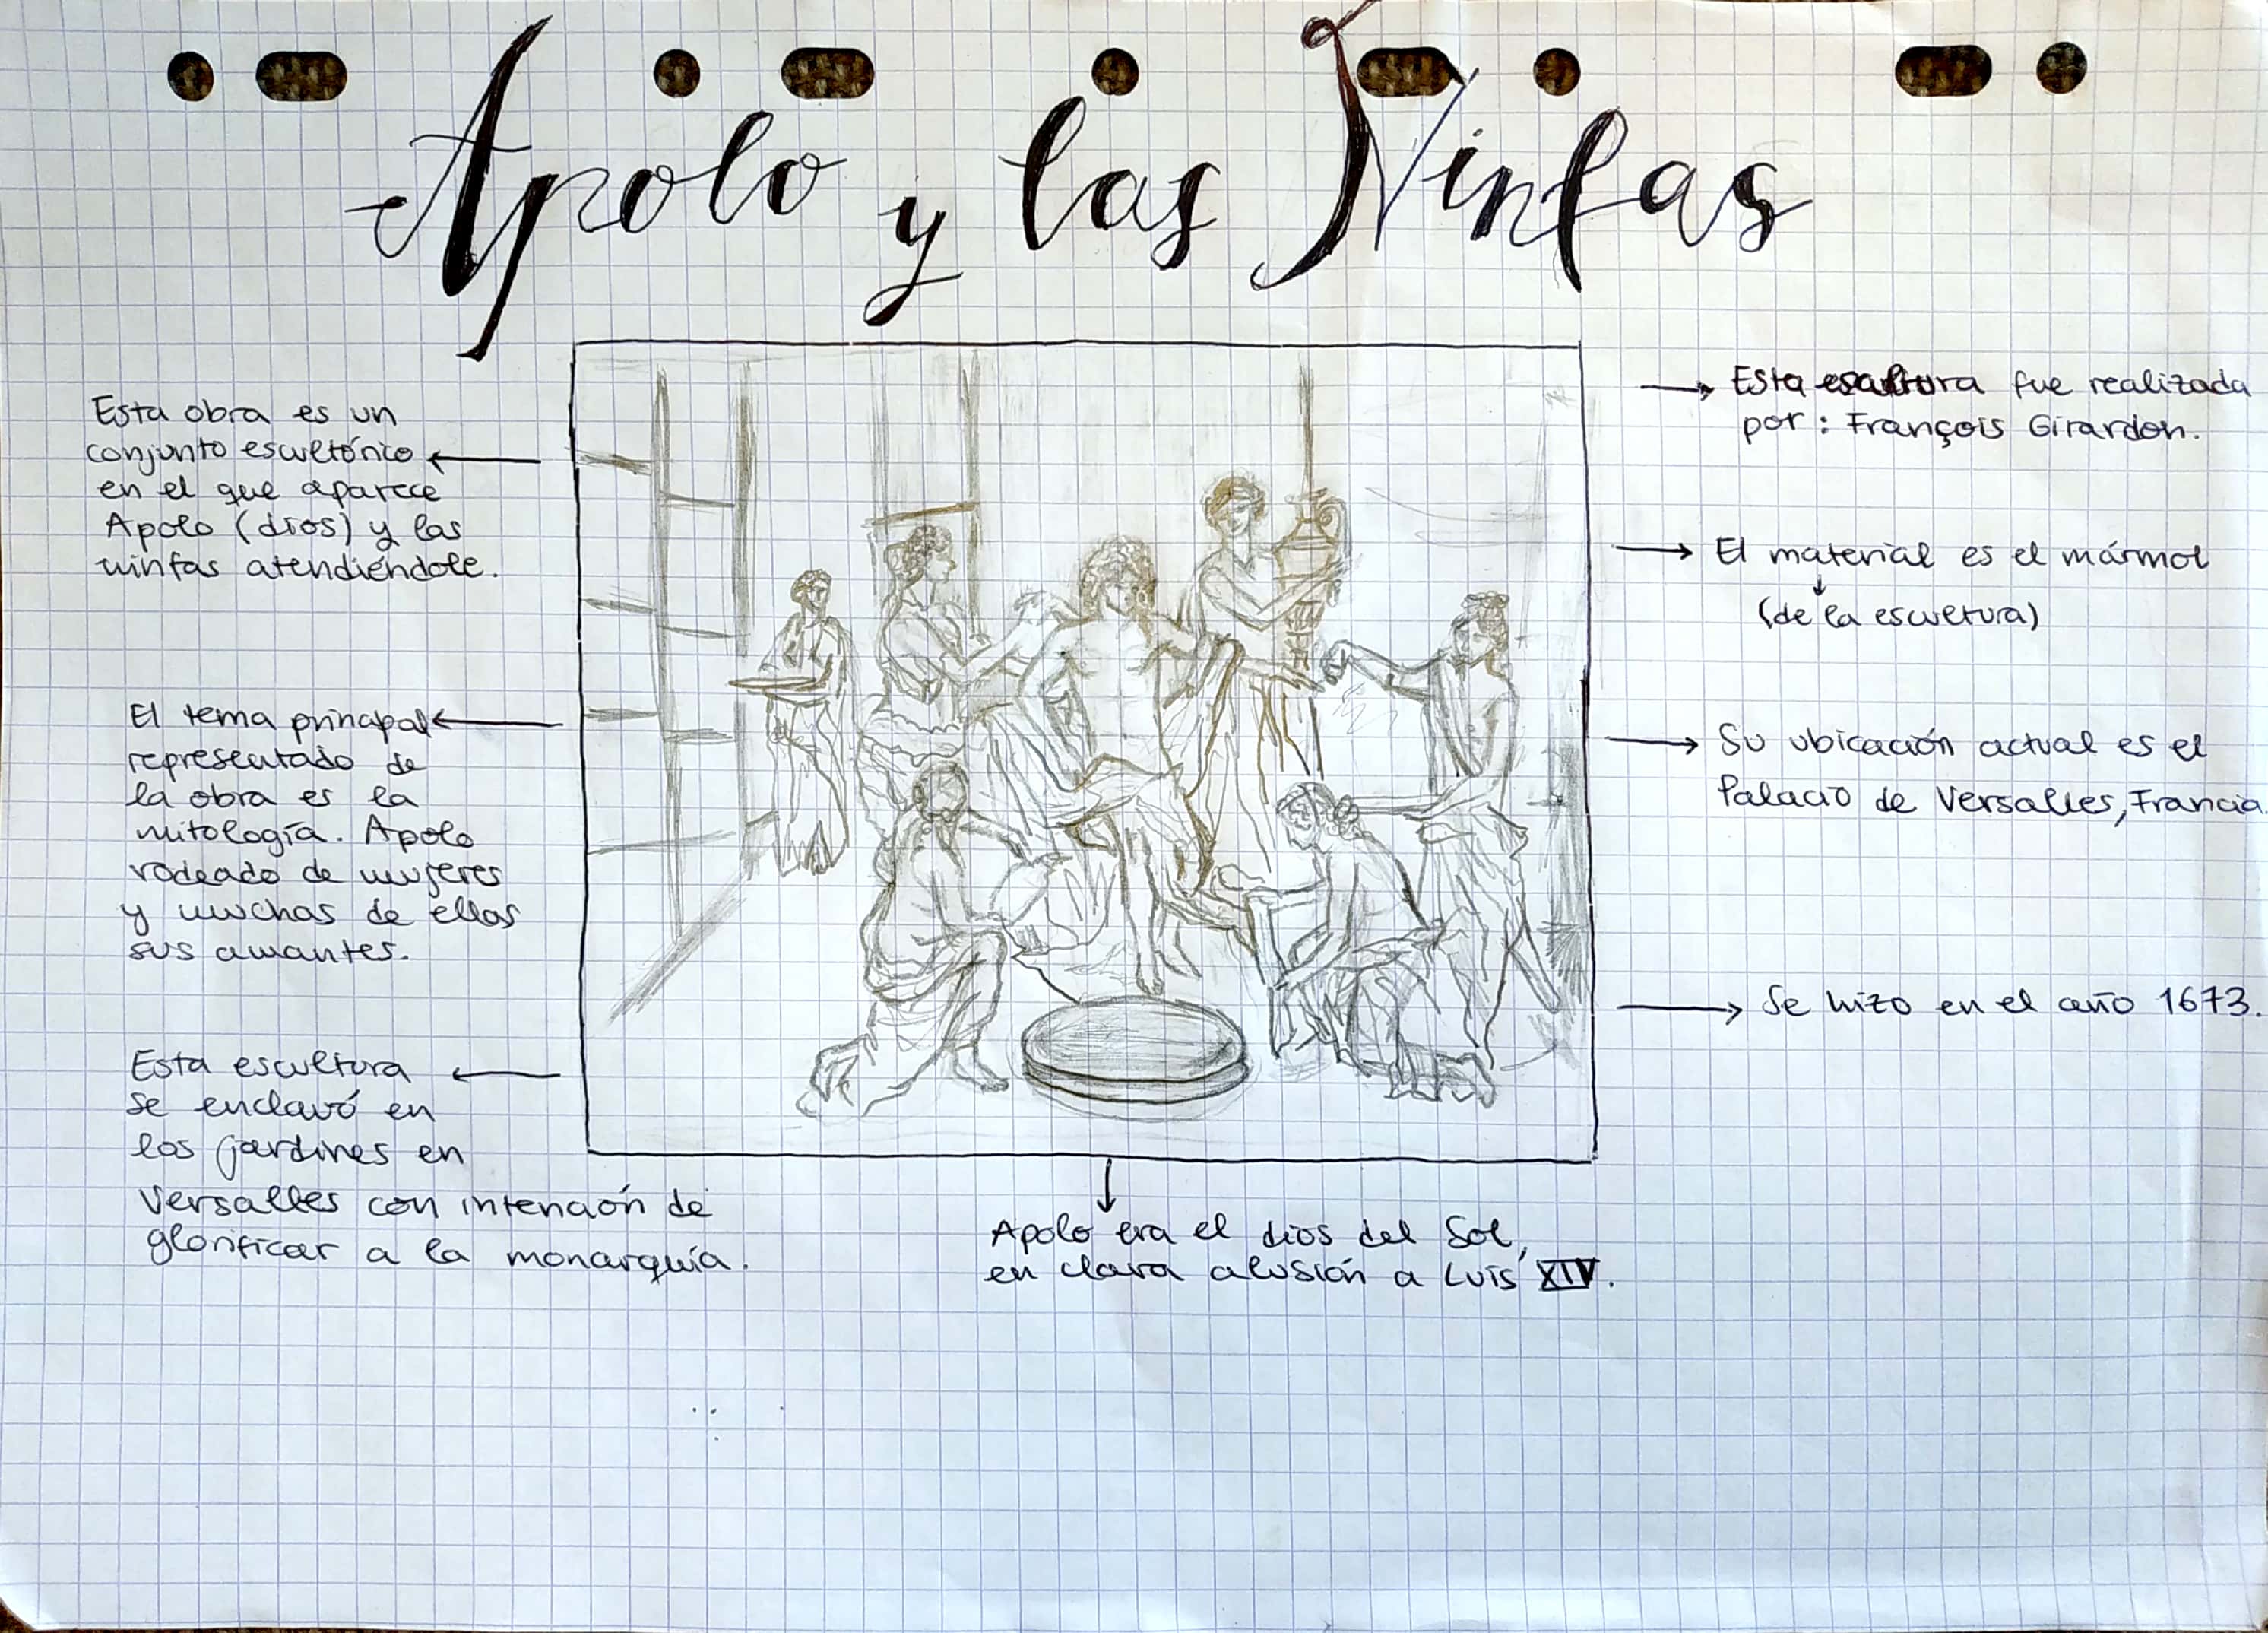 Apolo y las Ninfas
Esta obra es un
conjunto escultórico
en el que aparece
Apolo (dios) y las
ninfas atendiéndole.
El tema principal
representado de
la obra es la
mitología. Apolo
rodeado de mujeres
y muchas de ellas
sus amantes.
Esta escultura
se enclavó en
los jardines en
Versalles con intención de
glorificar a la monarquía.
Apolo era el dios del Sol,
en clara alusión a Luis XIV.
Esta escultura fue realizada
por: François Girardon.
El material es el mármol
(de la escultura)
Su ubicación actual es el
Palacio de Versalles, Francia.
Se hizo en el año 1673.